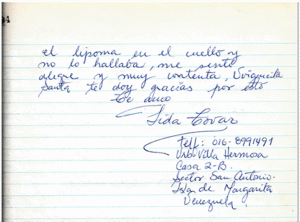 el lipoma en el cuello y
no lo hallaba, me sentí
alegre y muy contenta, Virgencita
Santa te doy gracias por esto
Lida Tovar
Telf: 016-8991491
Urb. Villa Hermosa
Casa 2-B.
Sector San Antonio.
Isla de Margarita
Venezuela